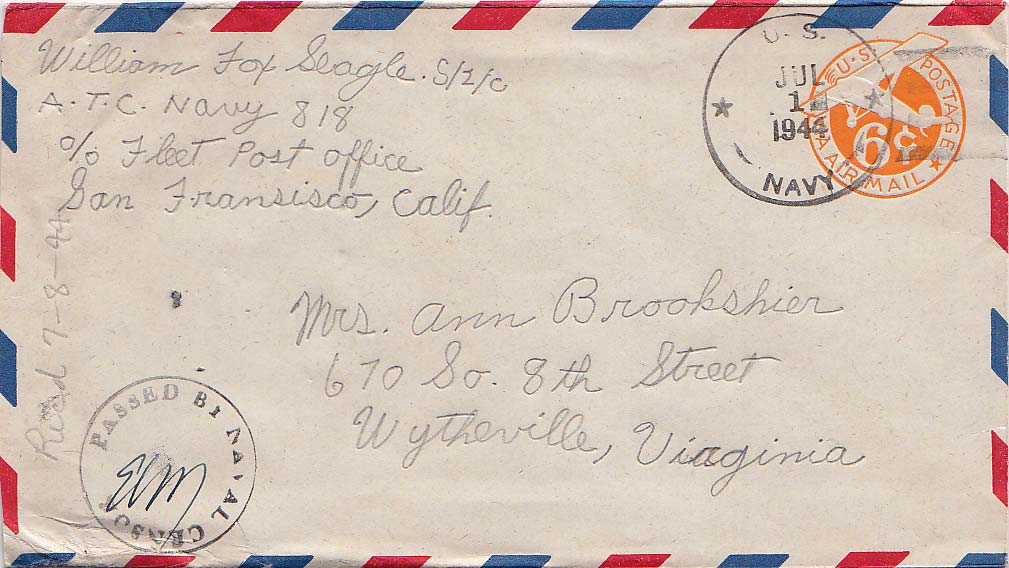 William Fox Seagle. S/2/c
A.T.C. Navy 818
c/o Fleet Post office
San Fransisco, Calif.
U. S.
JUL
1944
NAVY
U.S. POSTAGE
6¢
VIA AIR MAIL
Mrs. Ann Brookshier
670 So. 8th Street
Wytheville, Virginia
Rec'd 7-8-44
PASSED BY NAVAL CENSOR